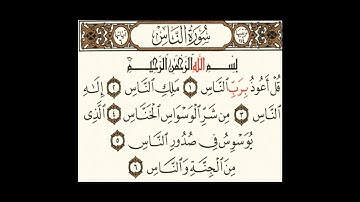 سُورَةُ النَّاسِ
بِسْمِ اللَّهِ الرَّحْمَٰنِ الرَّحِيمِ
قُلْ أَعُوذُ بِرَبِّ النَّاسِ ١ مَلِكِ النَّاسِ ٢ إِلَٰهِ
النَّاسِ ٣ مِن شَرِّ الْوَسْوَاسِ الْخَنَّاسِ ٤ الَّذِي
يُوَسْوِسُ فِي صُدُورِ النَّاسِ ٥
مِنَ الْجِنَّةِ وَالنَّاسِ ٦